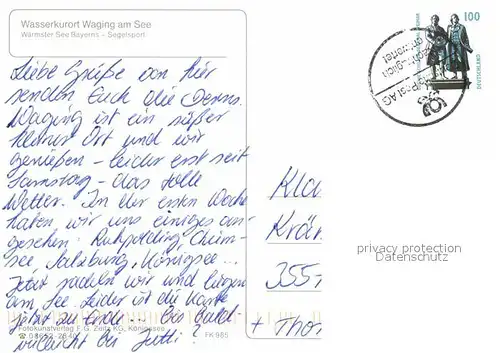 Wasserkurort Waging am See
Wärmster See Bayerns – Segelsport
Liebe Grüße von hier
senden Euch die
Waging ist ein süßer
kleiner Ort und wir
genießen – leider erst seit
Samstag – das tolle
Wetter. In der ersten Woche
haben wir uns einiges an-
gesehen: Ruhpolding, Chiem-
see, Salzburg, Königsee...
Jetzt radeln wir und liegen
am See. Leider ist die Karte
jetzt zu Ende... Bis bald –
vielleicht bei Jutti?
Fotokunstverlag F. G. Zeitz KG, Königssee
FK 985
100
Post AG
Kla
Krän
355
+ Thom
privacy protection
Datenschutz